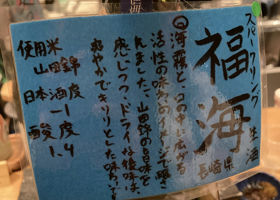 スパークリング
福海
生酒
長崎県
海霧と、口の中に広がる
活性の味わいのイメージで醸さ
れました、山田錦の旨味を
感じつつ、ドライな後味は、
爽やかでキリッとした味わい
使用米
山田錦
日本酒度
-1
酸度
1.4